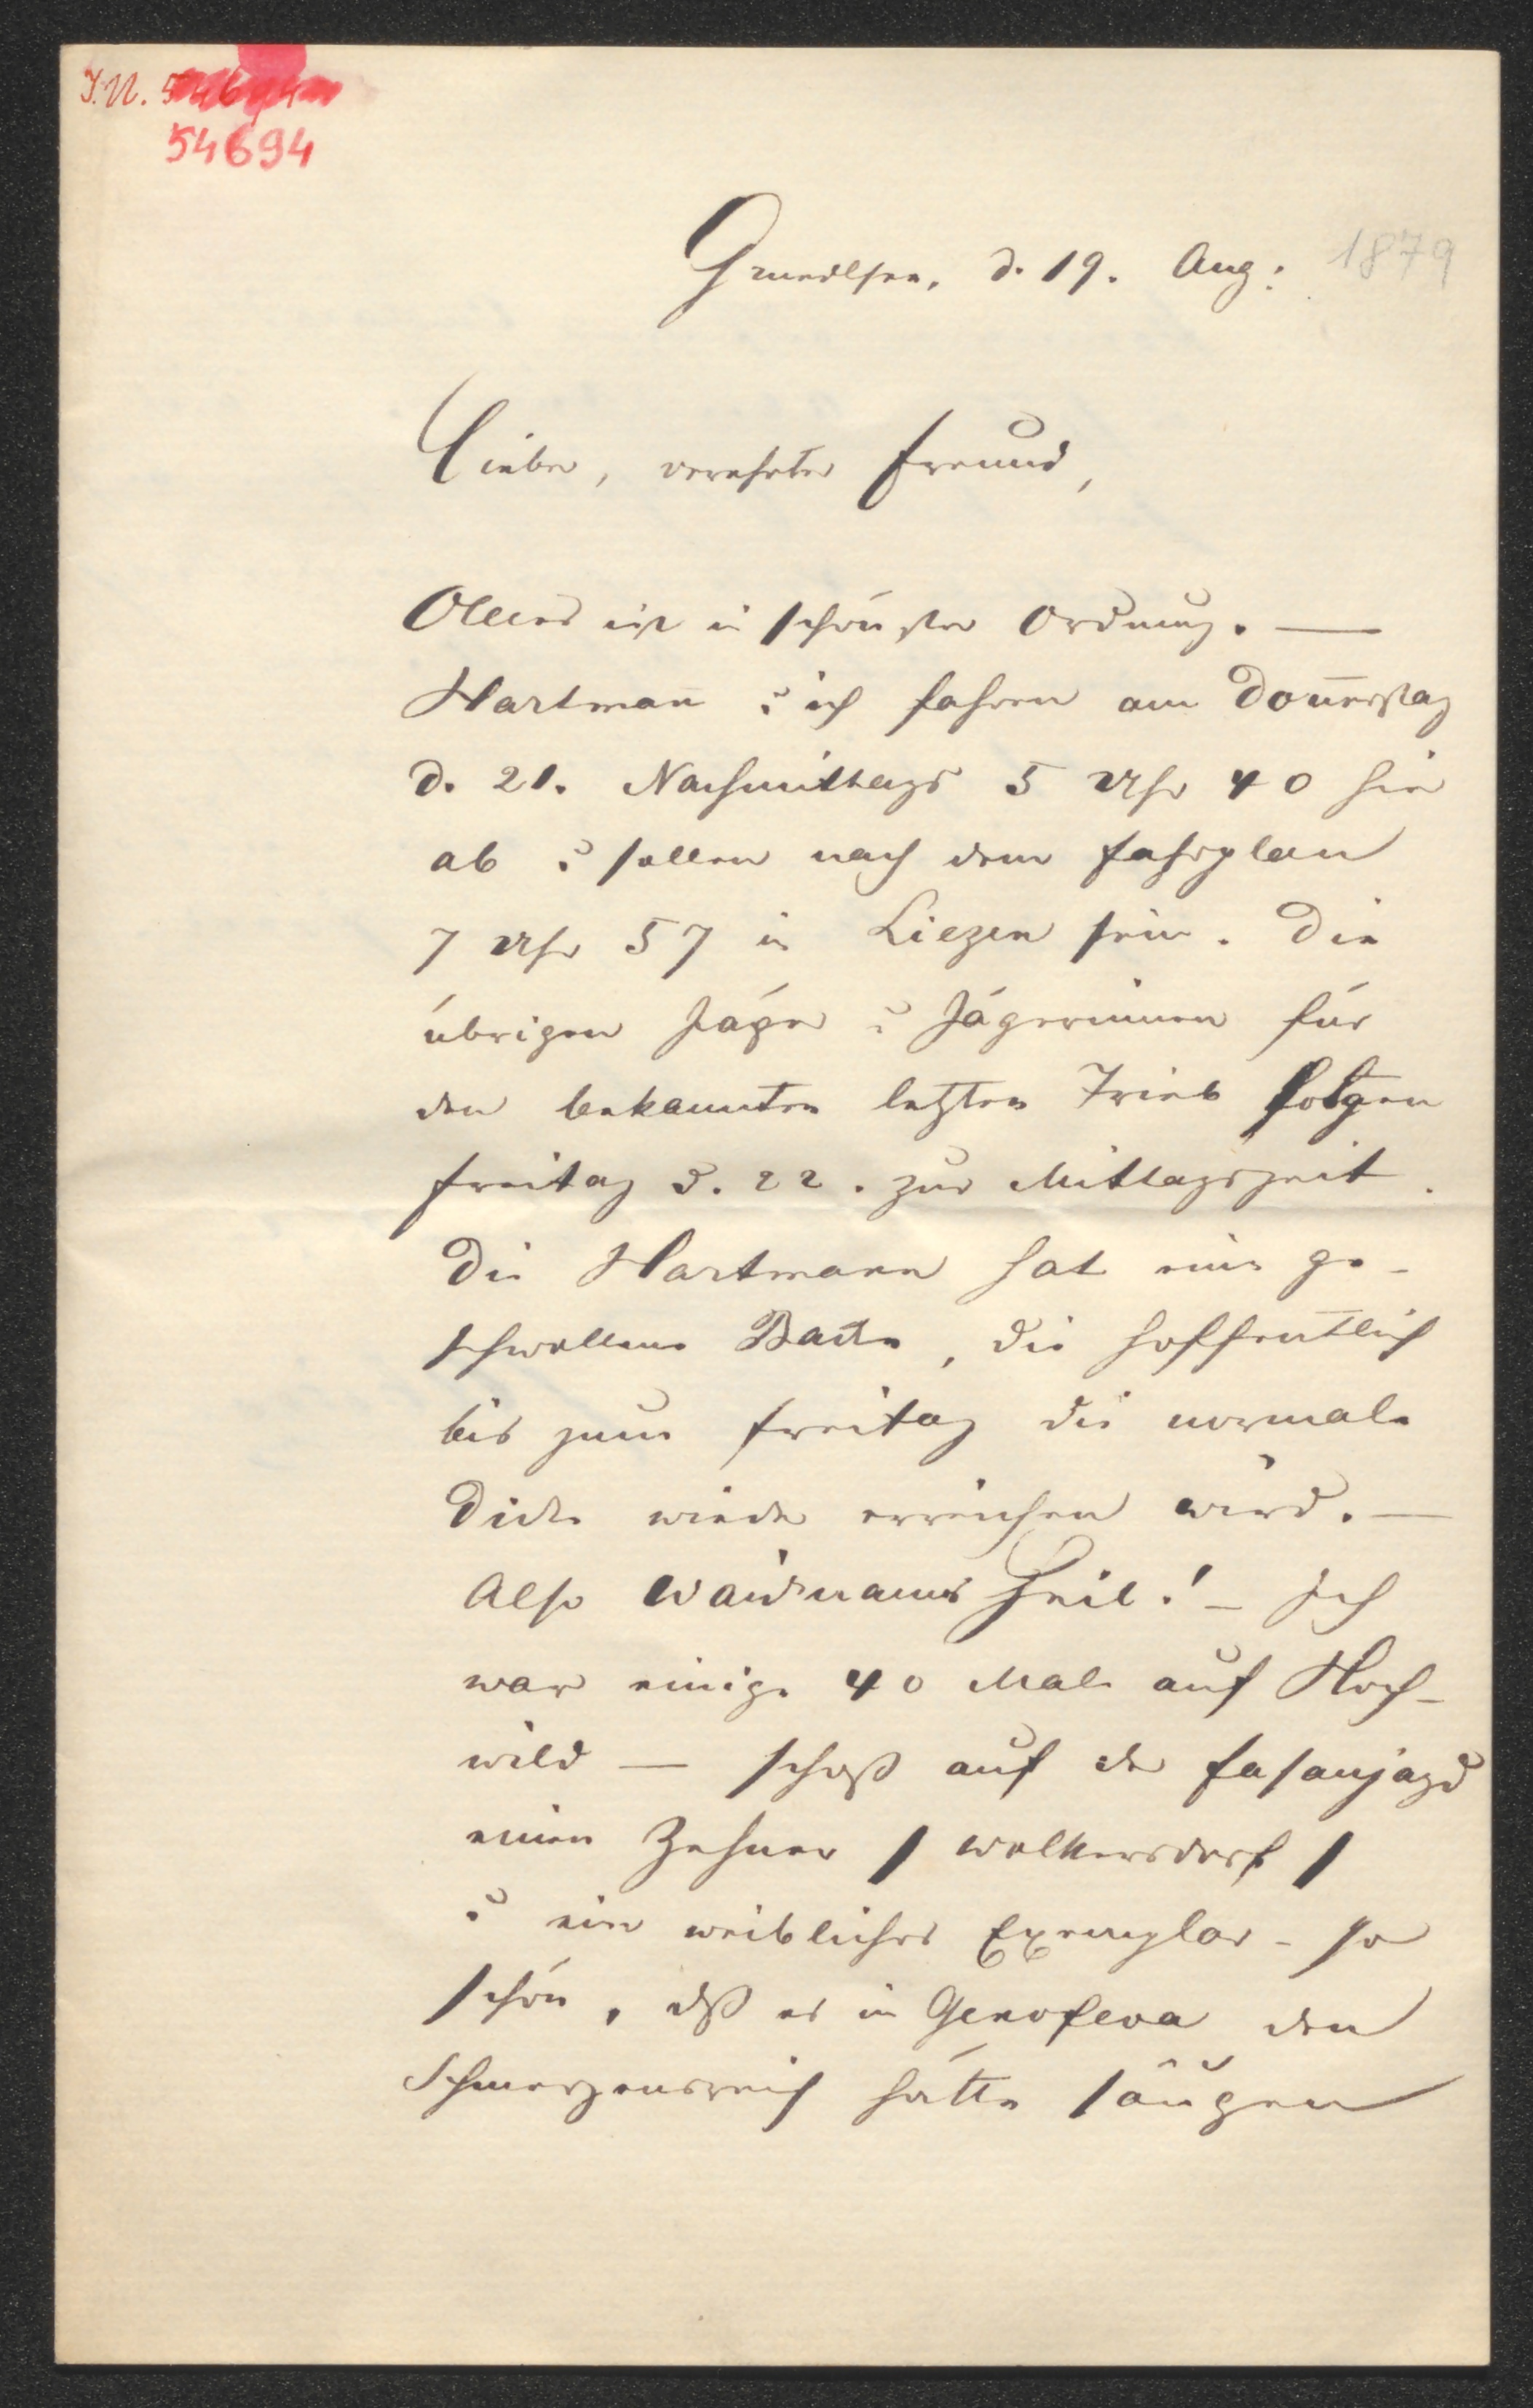 I.N. 54694
54694
Grundlsee, d. 19. Aug: 1879
Lieber, verehrter Freund,
Alles ist in schönster Ordnung. —
Hartman̄ u ich fahren am Don̄erstag
d. 21. Nachmittags 5 Uhr 40 hier
ab u sollen nach dem Fahrplan
7 Uhr 57 in Liezen sein. Die
übrigen Jäger u Jägerinnen für
den bekannten letzten Trieb folgen
Freitag d. 22. zur Mittagszeit.
Die Hartmann hat eine ge-
schwollene Backe, die hoffentlich
bis zum Freitag die normale
Dicke wieder erreichen wird. —
Also Waidmanns Heil! – Ich
war einige 40 Male auf Hoch-
wild — schoß auf der Fasanjagd
einen Zehner / Wolkersdorf /
u ein weibliches Exemplar – so
schön, dß es in Genofeva den
Schmerzensreich hätte säugen